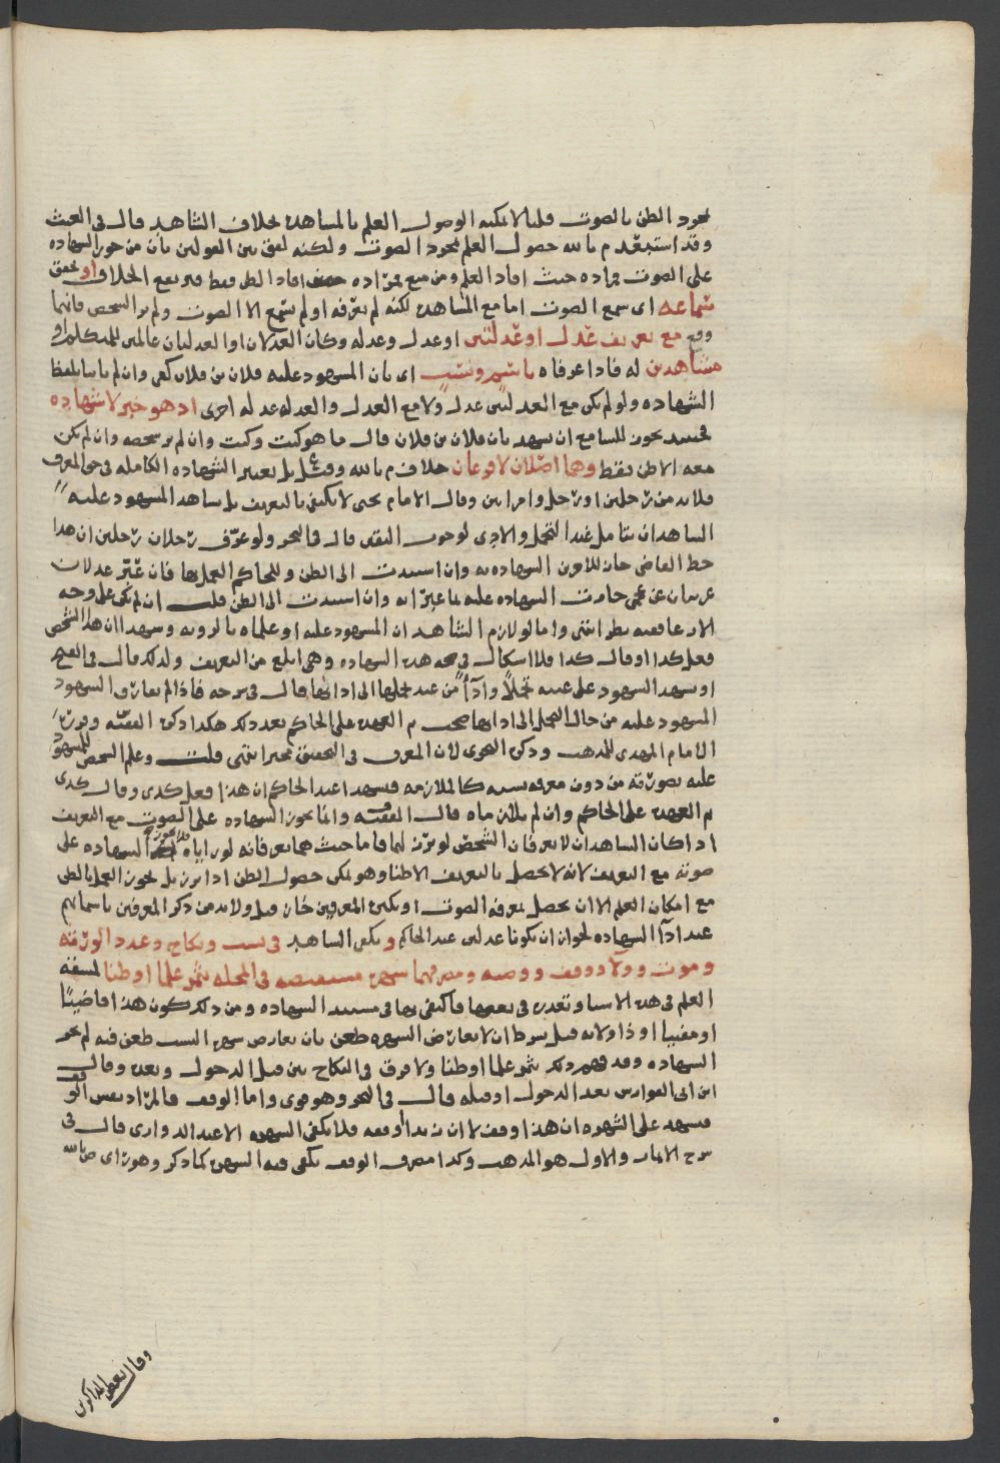 بمجرد الظن بالصوت قلنا لا يمكنه الوصول العلم بالمشاهدة بخلاف الشاهد قال في الغيث
وقد استبعد م بالله حصول العلم بمجرد الصوت ولكنه لفق بين القولين بأن من جوز الشهادة
على الصوت مراده حيث افاد العلم ومن منع مراده افاد الظن فقط فيرتفع الخلاف او تحقق
سماعه اى سمع الصوت اما مع المشاهدة لكنه لم يعرفه او لم يسمع الا الصوت ولم ير الشخص فانهما
مع تعريف عدل او عدلتين او عدل وعدله وكان العدلان او العدلتان عالمين للمتكلم او
مشاهدين له فاذا عرفاه باسم ونسب اى بان المشهود عليه فلان بن فلان كفى وان لم ياتيا بلفظ
الشهاده ولو لم يكن مع العدلتين عدل ولا مع العدل والعدله عدله اخرى اذ هو خبر لا شهاده
فحينئذ يجوز للسامع ان يشهد بان فلان بن فلان قال ما هو كيت وكيت وان لم ير شخصه وان لم يكن
معه الا ظن فقط وهما اصلان لا فرعان خلاف م بالله وقيل بل يعتبر الشهاده الكامله في حق المعرف
فلا بد من رجلين او رجل وامراتين وقال الامام يحيى لا يكفى بالتعريف بل يشاهد المشهود عليه
الشاهدان يتامل عند التحمل والادى لوجوب اليقين قال في البحر ولو عرف رجلان رجلين ان هذا
خط القاضى جاز للاخرين الشهاده به وان استندت الى الظن وللحاكم العمل بها فان عبّر عدلان
عربيان عن عجمى جازت الشهاده عليه بما عبرا به وان استندت الى الظن قلت ان لم يكن على وجه
الارعا ففيه نظر انتهى واما لو لازم الشاهدان المشهود عليه او علماه بالرويه وشهدا ان هذا الشخص
فعل كذا او قال كذا فلا اشكال في صحه هذه الشهاده وهى ابلغ من التعريف ولذلك قال في الفتح
او شهد الشهود على عينه تحملاً وأداً من عند تحملها الى ادائها قال في شرحه فاذا لم يفارق الشهود
المشهود عليه من حال التحمل الى ادائها صحت ثم العهده على الحاكم بعد ذلك هكذا ذكره الفقيه وقرره
الامام المهدى للمذهب وذكره النجرى لان المعرف في التحقيق مخبر انتهى قلت وعلم الشخص المشهود
عليه بصورته من دون معرفه نسبه كالملازمه فيشهدا عند الحاكم ان هذا فعل كذى وقال كذى
ثم العهده على الحاكم وان لم يلازماه قال الفقيه وانما يجوز الشهاده على الصوت مع التعريف
اذا كان الشاهدان لا يعرفان الشخص لو برز لهما فاما حيث هما يعرفانه لو راياه فلا يجوز الشهاده على
صوته مع التعريف لانه لا يحصل بالتعريف الا ظنا وهو يمكن حصول الظن اذا برز بل يجوز العمل بالظن
مع امكان العلم الا ان يحصل بمعرفه الصوت او يكثر المعرفين جاز قيل ولا بد من ذكر المعرفين باسمائهم
عند اداء الشهاده لجواز ان يكونا عدلين عند الحاكم ويكفى الشاهد في نسب ونكاح وعدد الورثه
وموت وولا ووقف ووصيه ومصرفهما شهرة مستفيضه في المحله تثمر علما او ظنا لمشقه
العلم في هذه الاشيا وتعذره في بعضها فاكتفى بها في مستند الشهاده ومن ذلك كون هذا قاضيًا
او مفتيا او ذا ولايه قيل بشرط ان لا يعارض الشهره طعن بان يعارض شهرة النسب طعن فيه لم يجز
الشهاده وقد فهم ذلك تثمر علما او ظنا ولا فرق في النكاح بين قبل الدخول وبعده وقال
ابن ابى الفوارس بعد الدخول او قبله قال في البحر وهو قوى واما الوقف فالمراد نفس الوقف
فيشهد على الشهره ان هذا وقف لا ان زيدا اوقفه فلا يكفى الشهره الا عند الدوارى قال في
شرح الاثمار والاول هو المذهب وكذا مصرف الوقف يكفى فيه الشهرة كما ذكر وهو راى ص بالله
وقال بعض المذاكرين